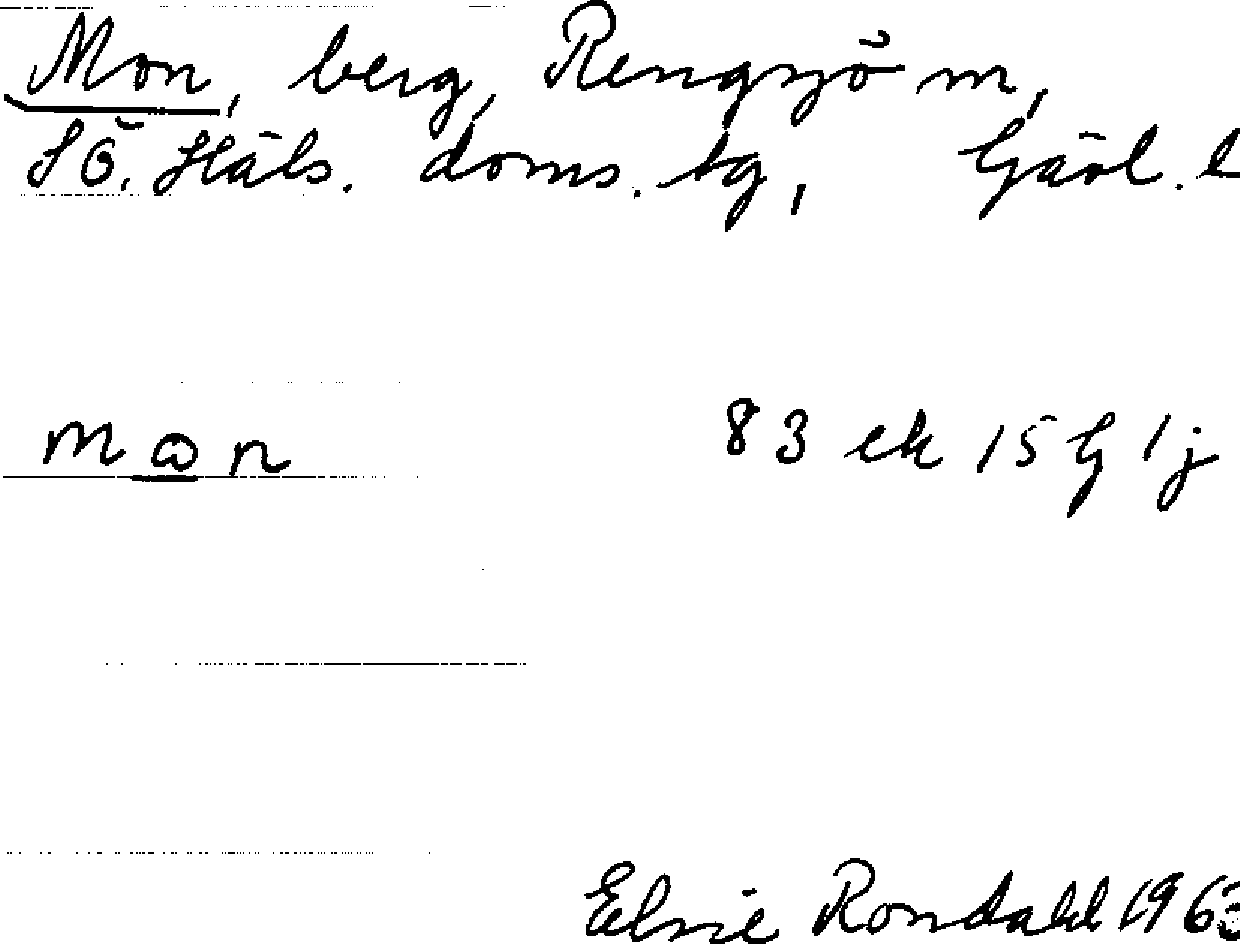 Mon, berg, Rengsjö m,
SÖ. Häls. doms. tg, Gävl. l
mꞷn 83 ek 15 G 1j
Elsie Rondahl 1963